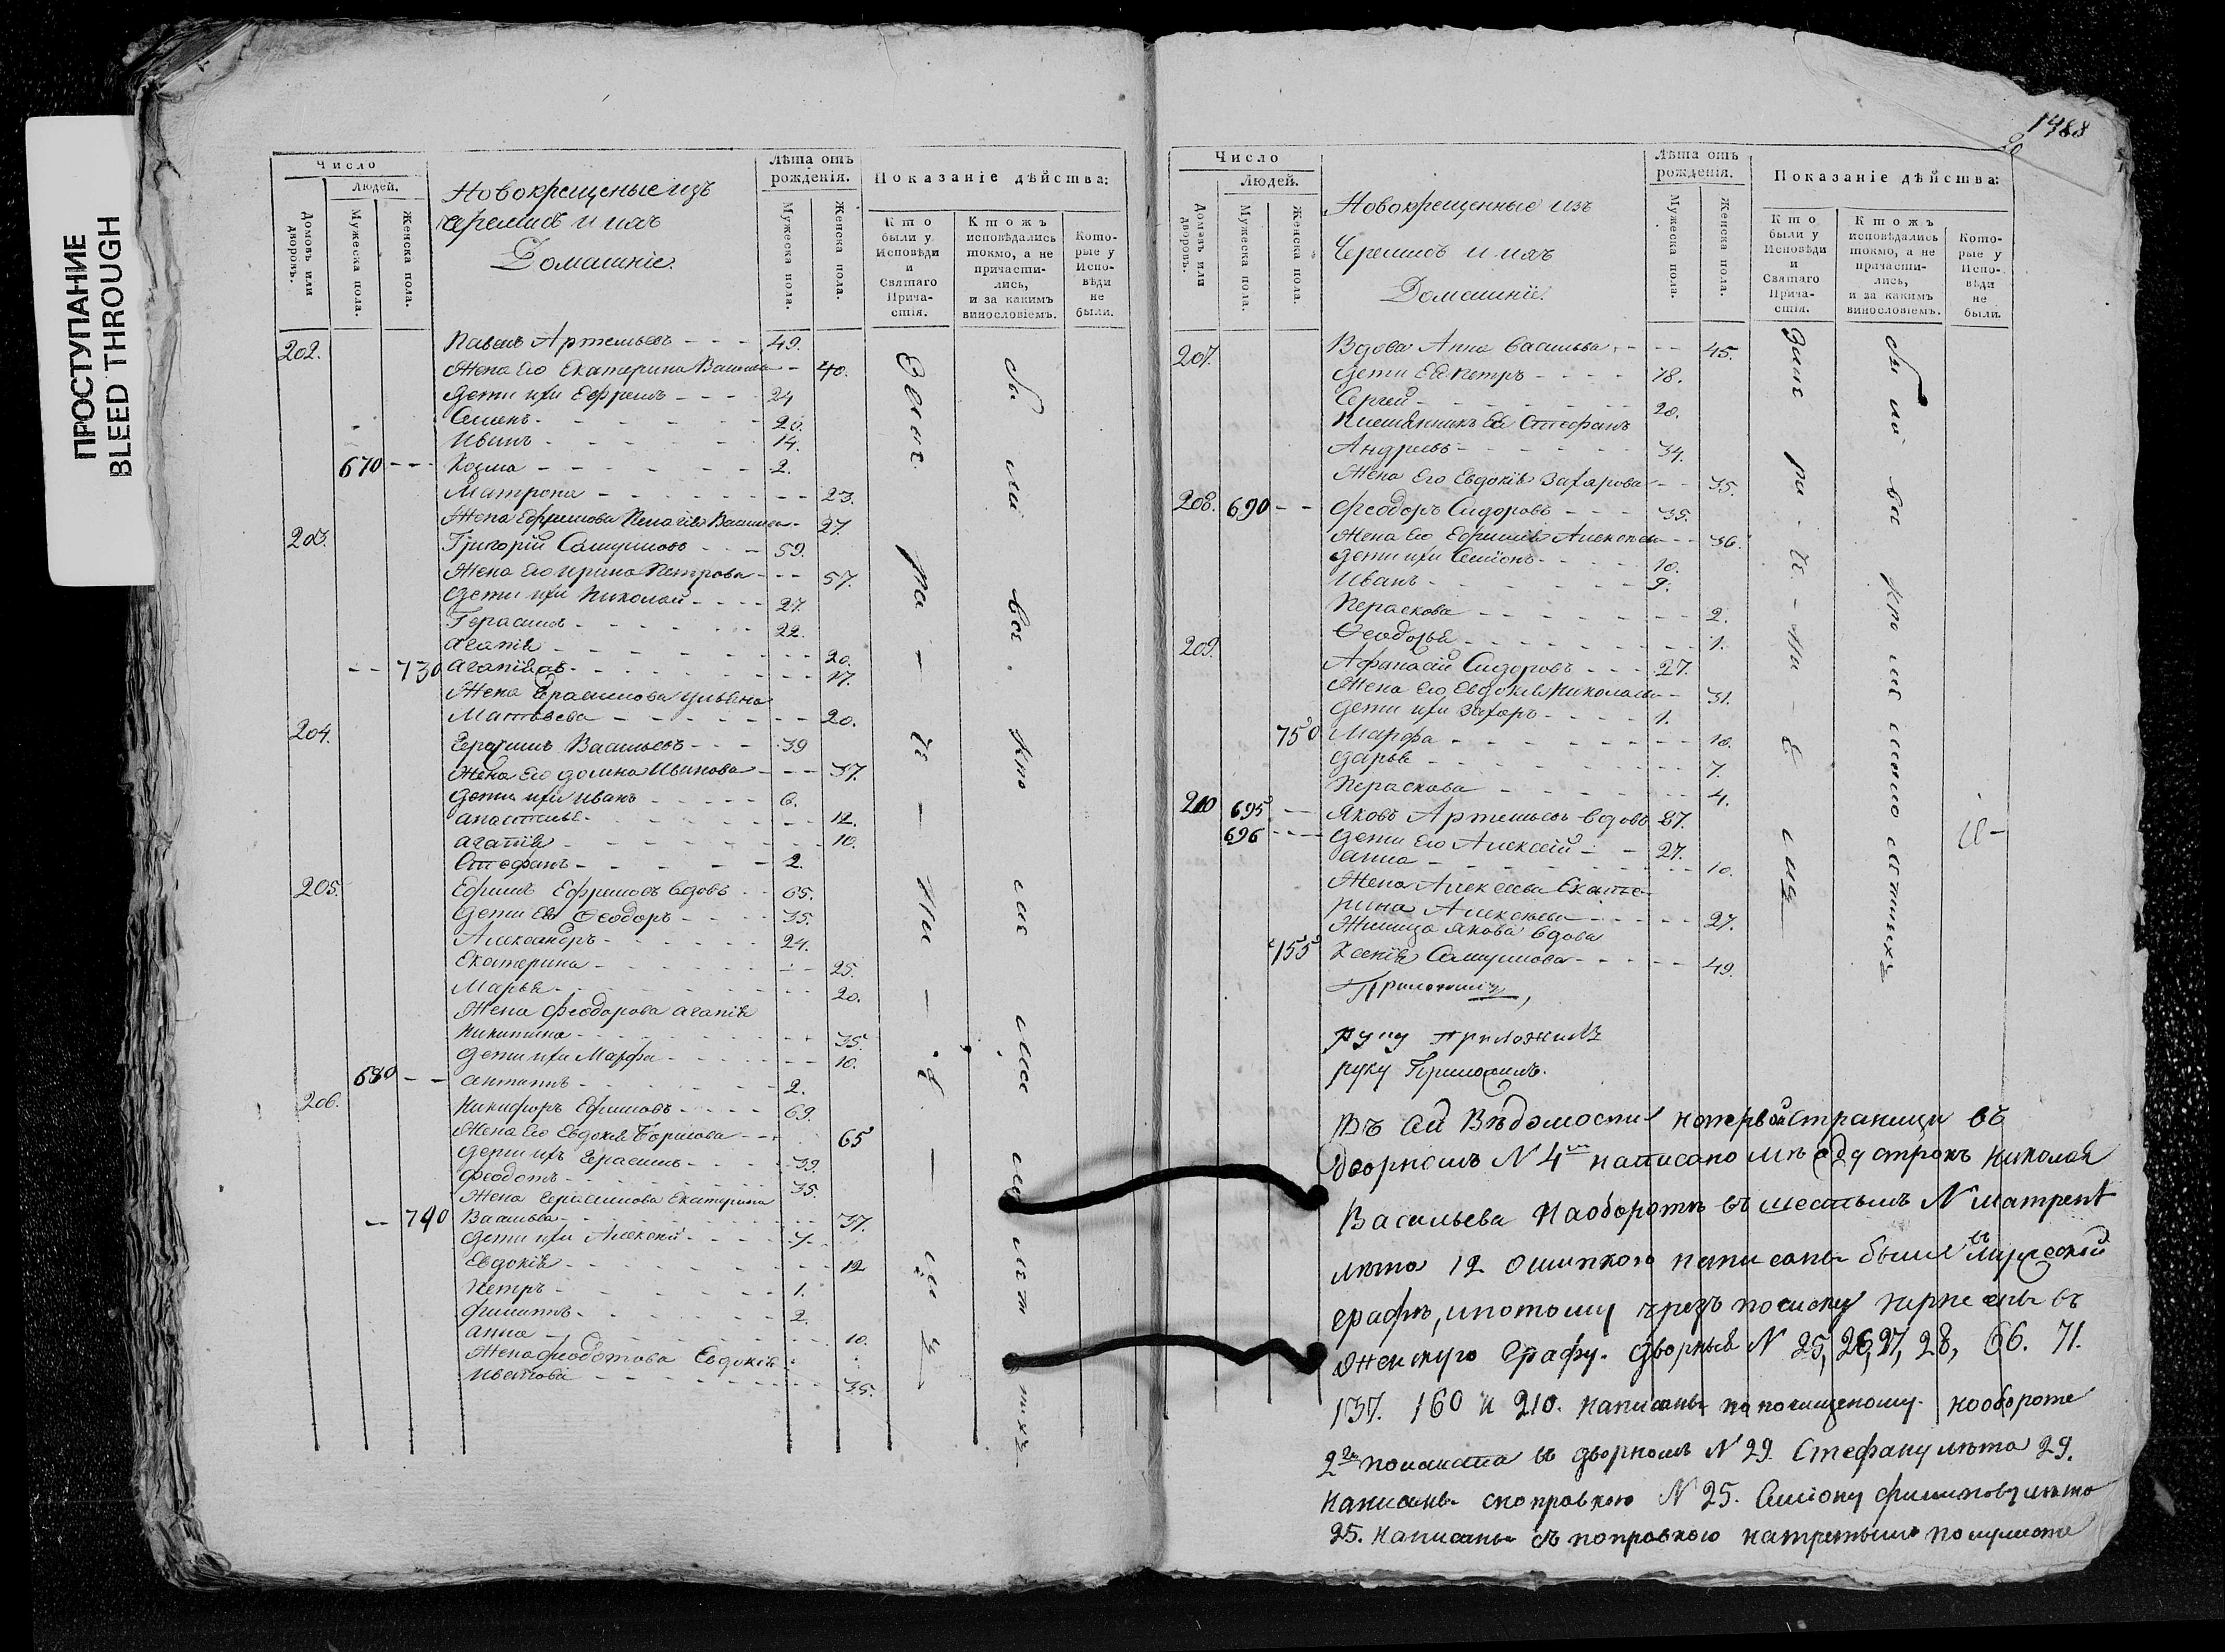 ПРОСТУПАНИЕ
BLEED THROUGH
Число
Людей.
Домовъ или дворовъ.
Мужеска пола.
Женска пола.
Новокрещеные изъ
черемисъ и ихъ
Домашніе.
Лѣта отъ рожденія.
Мужеска пола.
Женска пола.
Показаніе дѣйства:
Кто были у Исповѣди и Святаго Причастія.
Ктожъ исповѣдались токмо, а не причастились, и за какимъ винословіемъ.
Которые у Исповѣди не были.
202. Павелъ Артемьевъ - - - 49.
Жена Его Екатерина Васильева - 40.
Дети ихъ Ефремъ - - - 24
Семенъ - - - 20.
Иванъ - - - 14.
670 - - - Козма - - - 2.
Матрона - - - 23.
Жена Ефремова Пелагія Васильева - 27.
203. Григорій Самуиловъ - - - 59.
Жена Его Ирина Петрова - - - 57.
Дети ихъ Николай - - - 27.
Герасимъ - - - 22.
Агапія - - - 20.
- - 730 Агапія - - - 17.
Жена Герасимова Ульяна
Матвѣева - - - 20.
204. Герасимъ Васильевъ - - - 39
Жена Его Домна Иванова - - - 37.
Дети ихъ Иванъ - - - 6.
Анастасья - - - 12.
Агапія - - - 10.
Стефанъ - - - 2.
205. Ефимъ Ефремовъ вдовъ - - 65.
Дети Его Феодоръ - - - 35.
Александръ - - - 24.
Екатерина - - - 25.
Марья - - - 20.
Жена Феодорова Агапія
Никитина - - - 35.
Дети ихъ Марфа - - - 10.
680 - - Антипъ - - - 2.
206. Никифоръ Ефимовъ - - - 69.
Жена Его Евдокія Борисова - - - 65
Дети ихъ Герасимъ - - - 39.
Феодотъ - - - 35.
Жена Герасимова Екатерина
-- 740 Васильева - - - 37.
Дети ихъ Алексей - - - 7.
Евдокія - - - 12
Петръ - - - 1.
Филиппъ - - - 2.
Анна - - - 10.
Жена Феодотова Евдокія
Иванова - - - 35.
1488
Число
Людей.
Домовъ или дворовъ.
Мужеска пола.
Женска пола.
Новокрещенные изъ
Черемисъ и ихъ
Домашніе.
Лѣта отъ рожденія.
Мужеска пола.
Женска пола.
Показаніе дѣйства:
Кто были у Исповѣди и Святаго Причастія.
Ктожъ исповѣдались токмо, а не причастились, и за какимъ винословіемъ.
Которые у Исповѣди не были.
207. Вдова Анна Васильева - - - 45.
Дети Ее Петръ - - - 18.
Сергей - - - 20.
Племянникъ Ее Стефанъ
Андреевъ - - - 34.
Жена Его Евдокія Захарова - - 35.
208. 690 - - Феодоръ Сидоровъ - - - 35.
Жена Его Ефимія Алексеева - - 36.
Дети ихъ Семіонъ - - - 10.
Иванъ - - - 9.
Пераскова - - - 2.
Феодосья - - - 1.
209. Афанасій Сидоровъ - - - 27.
Жена Его Евдокія Николаева - - 31.
Дети ихъ Захаръ - - - 1.
750 Марфа - - - 10.
Дарья - - - 7.
Пераскова - - - 4.
210 695 - Яковъ Артемьевъ вдовъ 87.
696 - - - Дети Его Алексѣй - - 27.
Анна - - - 10.
Жена Алексеева Екате-
рина Алексеева - - - 27.
Якова вдова
755 Ксенія Самуилова - - - 49.
руку приложилъ
руку Приложилъ.
Въ сей Вѣдомости на первой странице въ
дворномъ N 4м написано между строкъ Николая
Васильева Наоборотѣ въ шестымъ N Матрене
лѣта 12 ошипкою написаны были въ Мужеской
графѣ, и потому чрезъ
Женскую Графу. Дворныя N 25, 26, 27, 28, 66. 71.
137. 160 и 210. Написаны по почищеному. На обороте
2го полулиста въ дворномъ N 29. Стефану лѣта 29.
Написаны с поправкою N 25. Симіону Филипову лѣта
25. Написаны съ поправкою на третьимъ полулисте